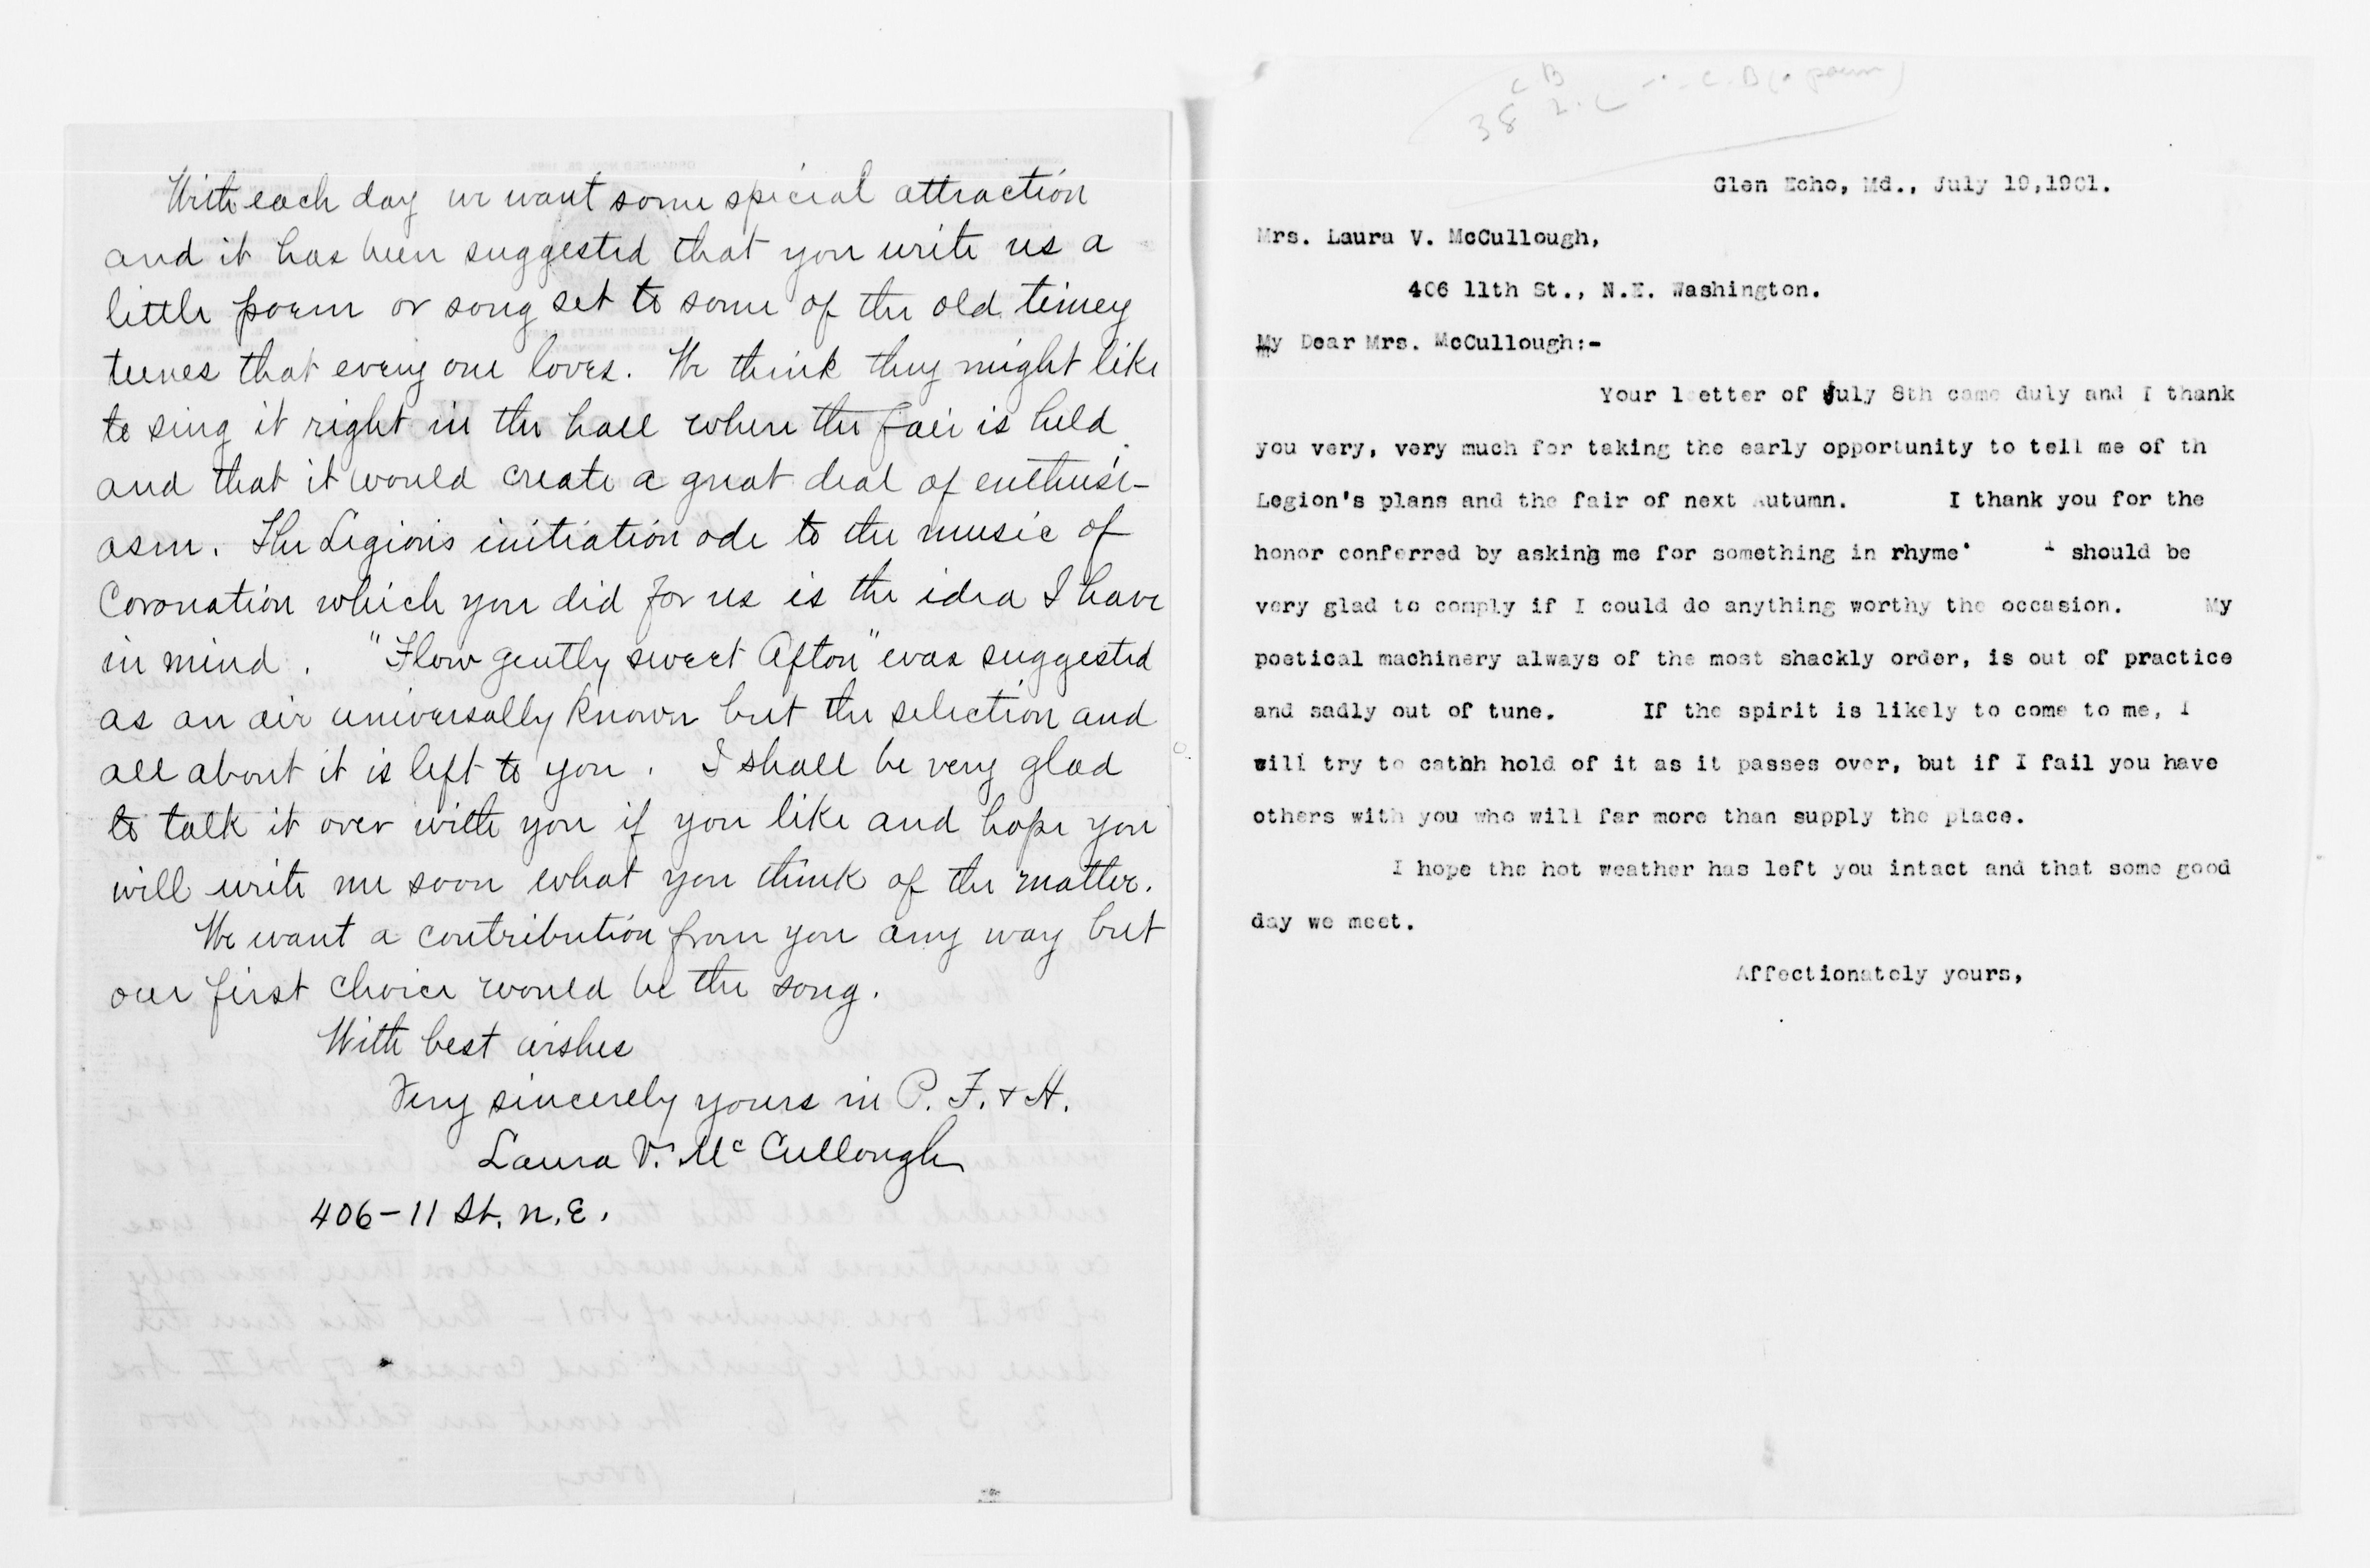 With each day we want some special attraction
and it has been suggested that you write us a
little poem or song set to some of the old timey
tunes that every one loves. We think they might like
to sing it right in the hall when the fair is held
and that it would create a great deal of enthusi-
asm. The Legion's initiation ode to the music of
Coronation which you did for us is the idea I have
in mind. "Flow gently sweet Afton" was suggested
as an air universally known but the selection and
all about it is left to you. I shall be very glad
to talk it over with you if you like and hope you
will write me soon what you think of the matter.
We want a contribution from you any way but
our first choice would be the song.
With best wishes
Very sincerely yours in P. F. + H.
Laura V. McCullough
406-11 St. N.E.
38
C B
C.B (a poem)
Glen Echo, Md., July 19,1901.
Mrs. Laura V. McCullough,
406 11th St., N.E. Washington.
My Dear Mrs. McCullough:-
Your l etter of July 8th came duly and I thank
you very, very much for taking the early opportunity to tell me of th
Legion's plans and the fair of next Autumn. I thank you for the
honor conferred by asking me for something in rhyme' I should be
very glad to comply if I could do anything worthy the occasion. My
poetical machinery always of the most shackly order, is out of practice
and sadly out of tune. If the spirit is likely to come to me, I
will try to cathh hold of it as it passes over, but if I fail you have
others with you who will far more than supply the place.
I hope the hot weather has left you intact and that some good
day we meet.
Affectionately yours,